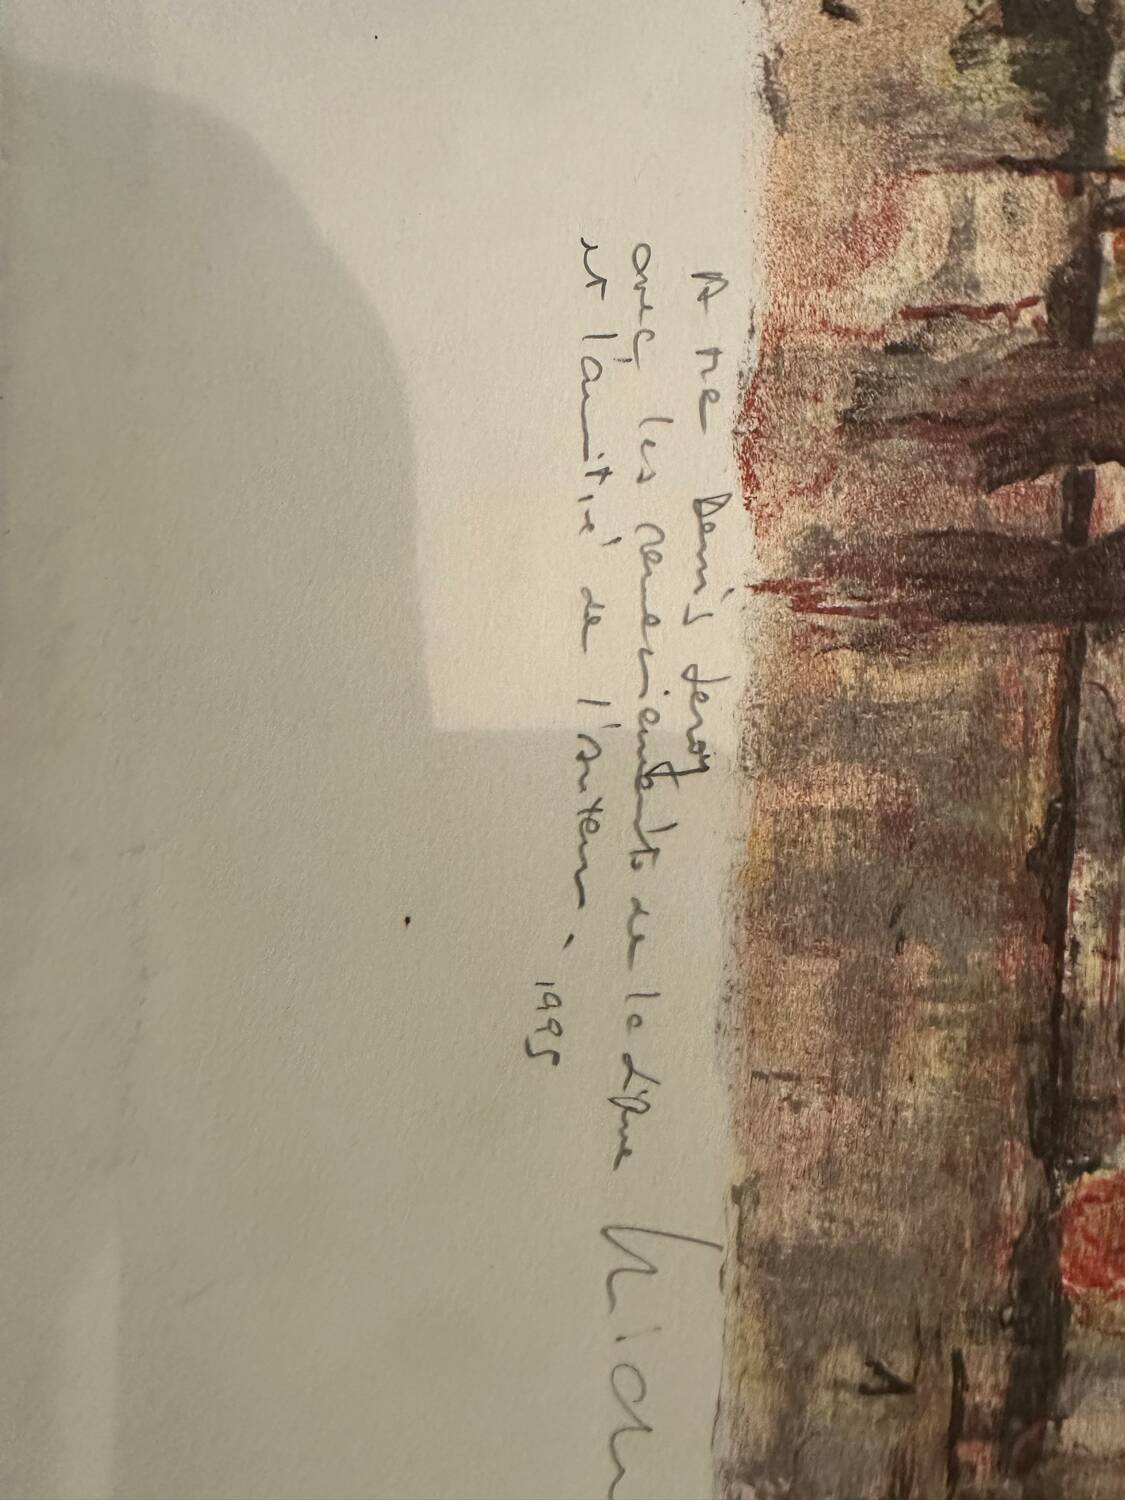 A Me Denis Leroy
avec les remerciements de
et l'amitié de l'auteur.
1995